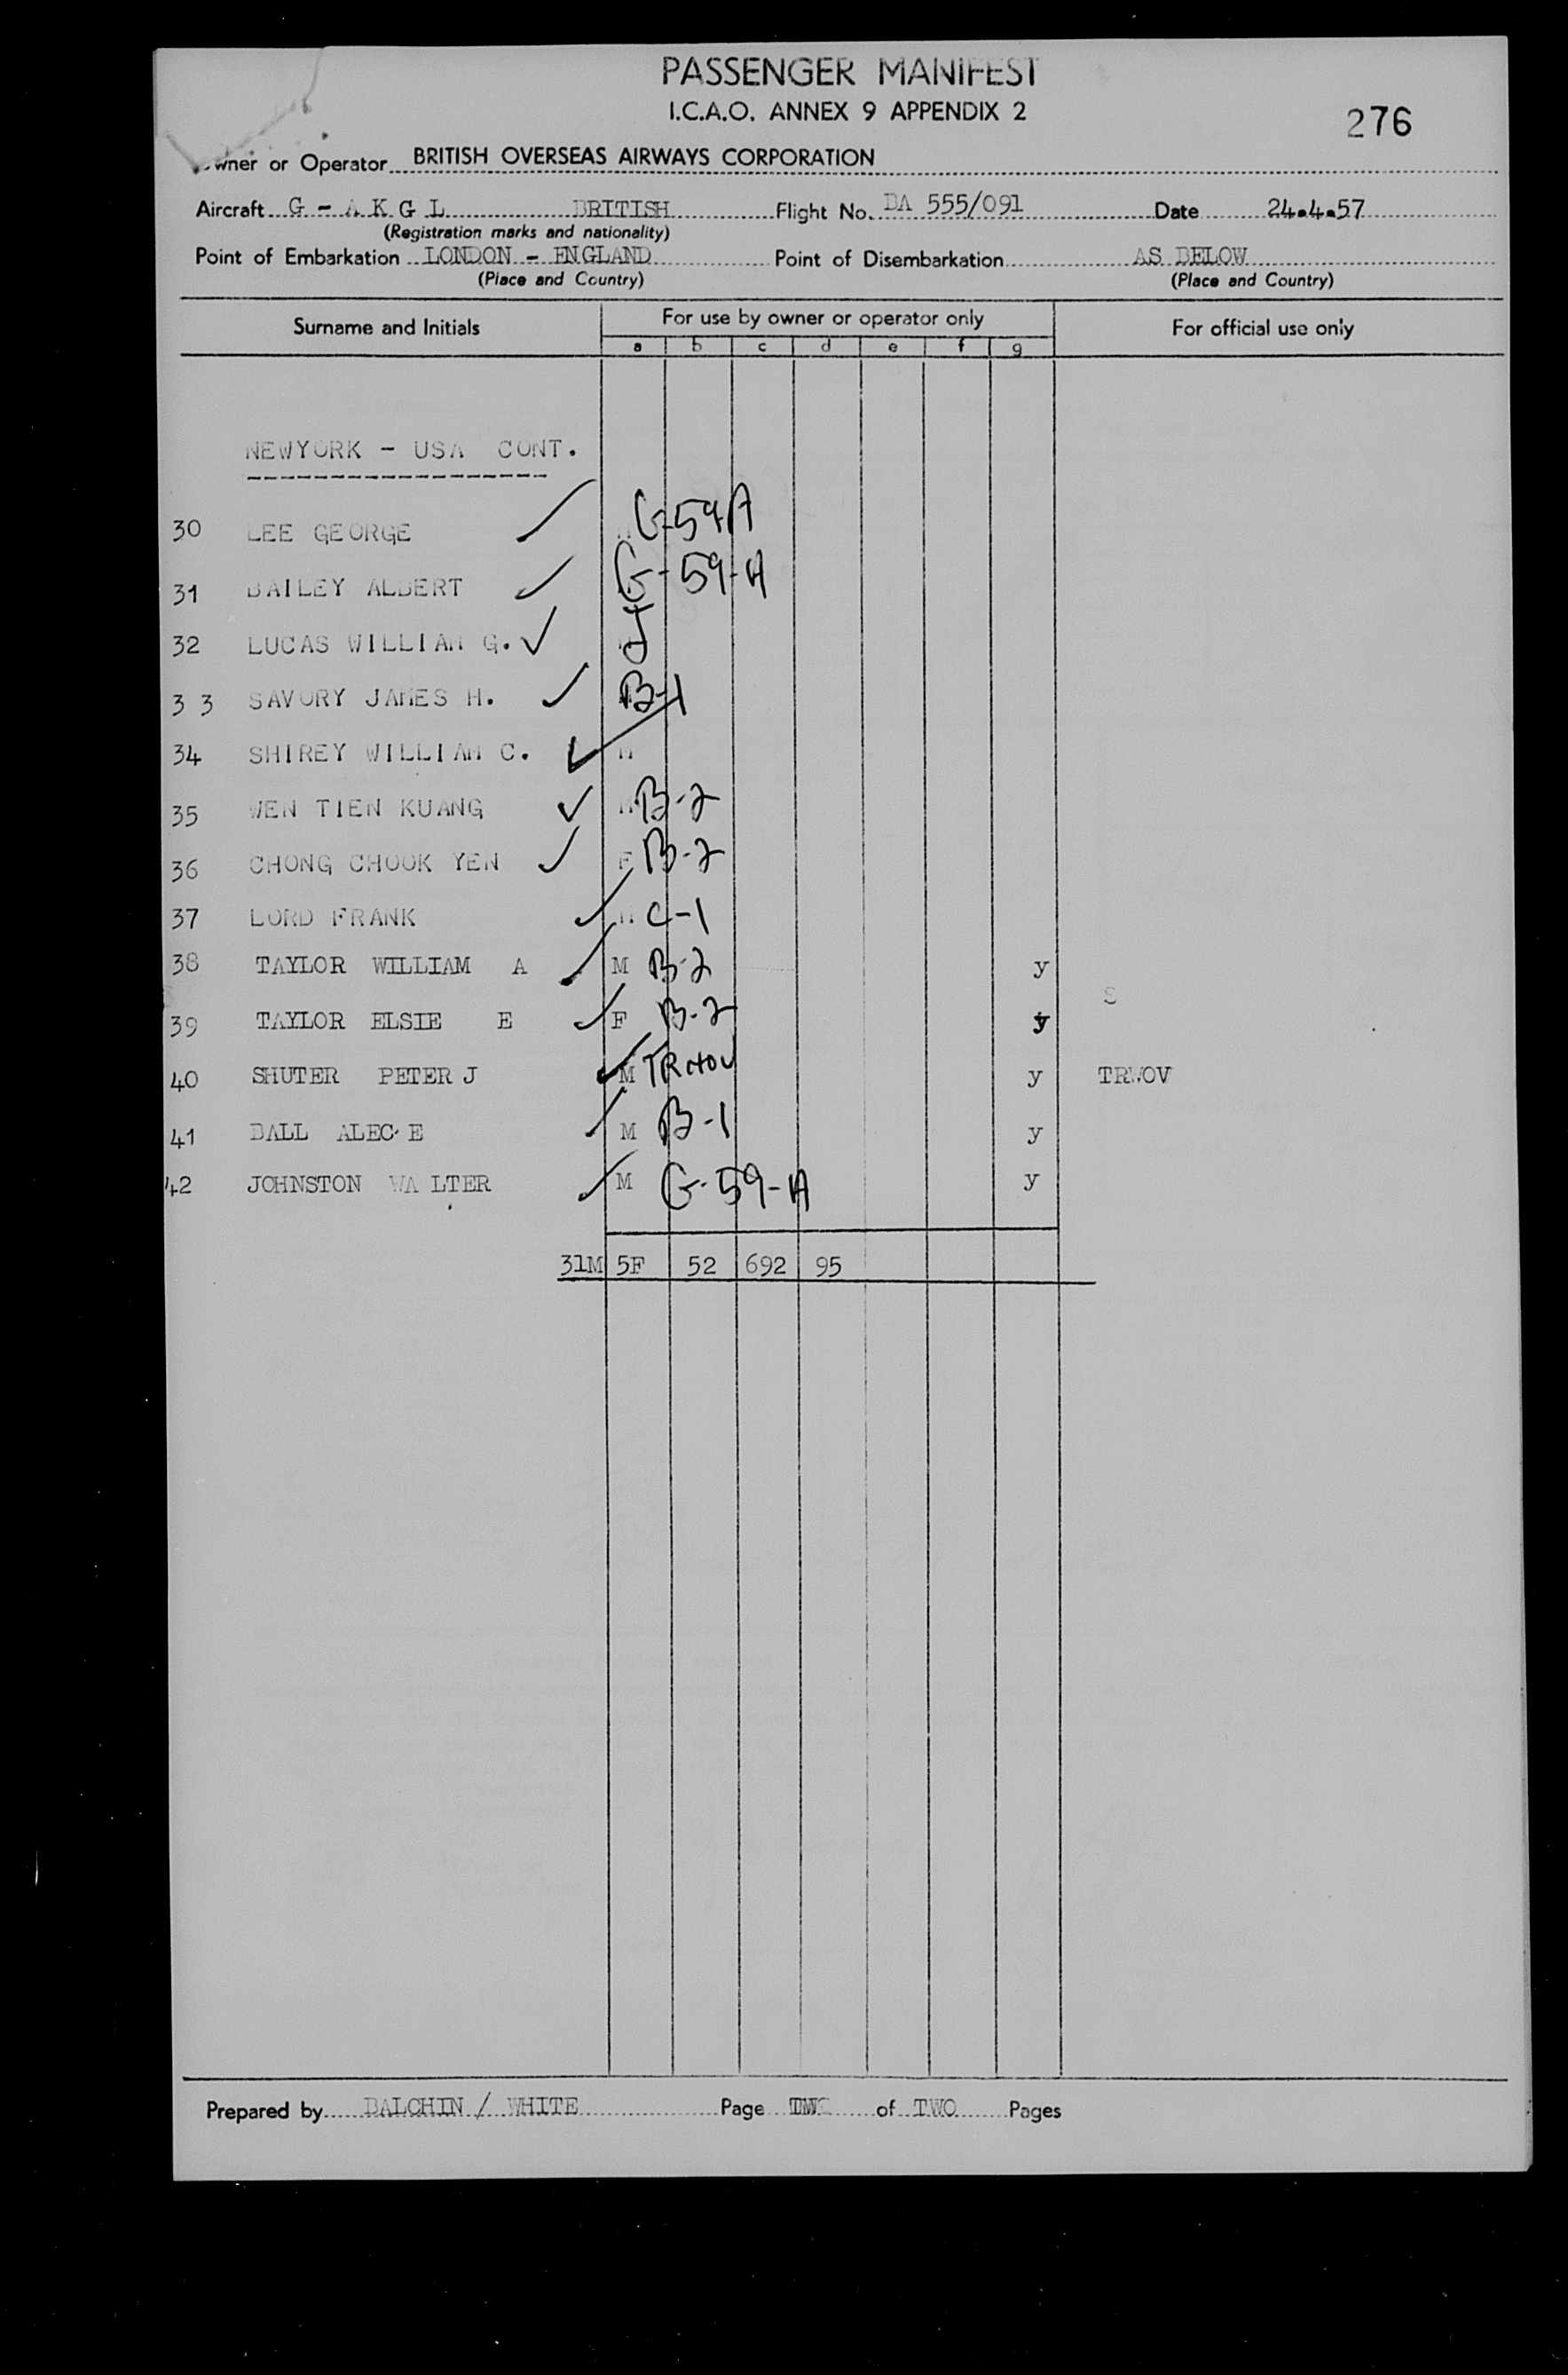 PASSENGER MANIFEST
I.C.A.O. ANNEX 9 APPENDIX 2
276
Owner or Operator BRITISH OVERSEAS AIRWAYS CORPORATION
Aircraft G - A K G L BRITISH Flight No. BA 555/091 Date 24.4.57
(Registration marks and nationality)
Point of Embarkation LONDON - ENGLAND Point of Disembarkation AS BELOW
(Place and Country) (Place and Country)
Surname and Initials For use by owner or operator only For official use only
a b c d e f g
NEWYORK - USA CONT.
30 LEE GEORGE G-59A
31 BAILEY ALBERT G-59-A
32 LUCAS WILLIAM G.
33 SAVORY JAMES H. B-1
34 SHIREY WILLIAM C. M
35 WEN TIEN KUANG M B-2
36 CHONG CHOOK YEN F B-2
37 LORD FRANK M C-1
38 TAYLOR WILLIAM A M B-2 y
S
39 TAYLOR ELSIE E F B-2 y
40 SHUTER PETER J M TRWOV y TRWOV
41 BALL ALEC E M B-1 y
42 JOHNSTON WA LTER M G-59-A y
31M 5F 52 692 95
Prepared by BALCHIN / WHITE Page TWO of TWO Pages